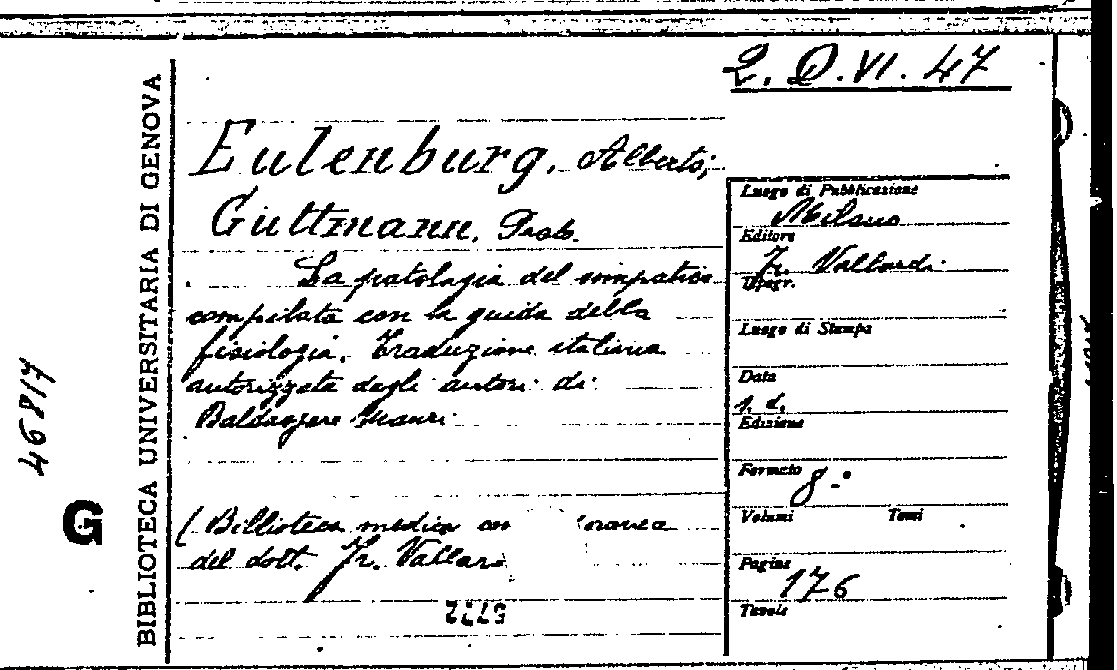 2. Q. VI. 47
BIBLIOTECA UNIVERSITARIA DI GENOVA
46817
G
Eulenburg, Alberto;
Guttmann, Prob.
La patologia del simpatico
compilata con la guida della
fisiologia. Traduzione italiana
autorizzata dagli autori di
Baldassare
(Biblioteca medica
del dott. Fr. Vallardi
Luogo di Pubblicazione
Milano
Editore
Fr. Vallardi
Tipogr.
Luogo di Stampa
Data
Edizione
Formato
8°
Volumi Tomi
Pagine
176
Tavole